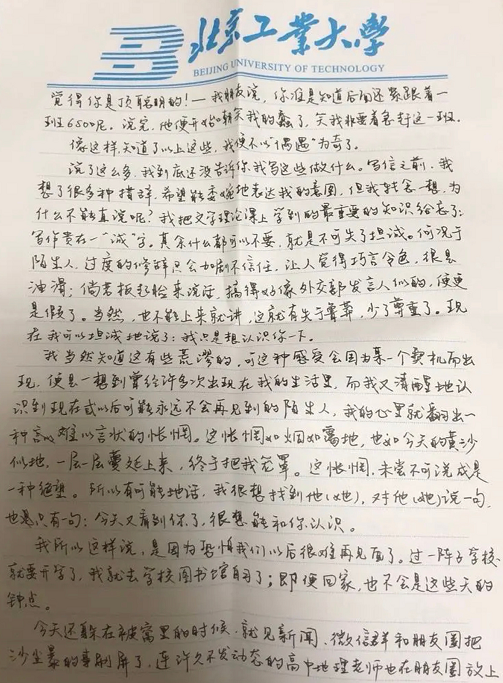 北京工业大学
BEIJING UNIVERSITY OF TECHNOLOGY
觉得你是顶聪明的!—我朋友说，你准是知道后面还紧跟着一
班650呢。说完，他便开始转笑我的蠢了，笑我非要着急赶这一班。
像这样，知道了以上这些，我便不以“偶遇”为奇了。
说了这么多，我到底还没告诉你我写这些做什么。写信之前，我
想了很多种措辞，希望能委婉地表达我的意图，但我转念一想，为
什么不能直说呢？我把文学理论课上学到的最重要的知识给忘了：
写作贵在一“诚”字。其余什么都可以不要，就是不可失了坦诚。何况于
陌生人，过度的修辞只会加剧不信任，让人觉得巧言令色，很是
油滑；倘老板起脸来说话，搞得好像外交部发言人似的，便更
是假了。当然，也不能上来就讲，这就有失于鲁莽，少了尊重。现
在我可以坦诚地说了：我只是想认识你一下。
我当然知道这有些荒谬的，可这种感受会因为某一个契机而出
现，便是一想到曾经许多次出现在我的生活里，而我又清醒地认
识到现在或以后可能永远不会再见到的陌生人，我的心里就翻出一
种难以言状的怅惘。这怅惘如烟如雾地，也如今天的黄沙
似地，一层层蔓延上来，终于把我笼罩。这怅惘，未尝不可说成是
一种绝望。所以有可能地话，我很想找到他(她)，对他(她)说一句，
也是只有一句：今天又看到你了，很想能和你认识。
我所以这样说，是因为恐怕我们以后很难再见面了。过一阵子学校
就要开学了，我就去学校图书馆自习了；即便回家，也不会是这些天的
钟点。
今天还躲在被窝里的时候，就见新闻、微信群和朋友圈把
沙尘暴的事刷屏了，连许久不发动态的高中地理老师也在朋友圈放上